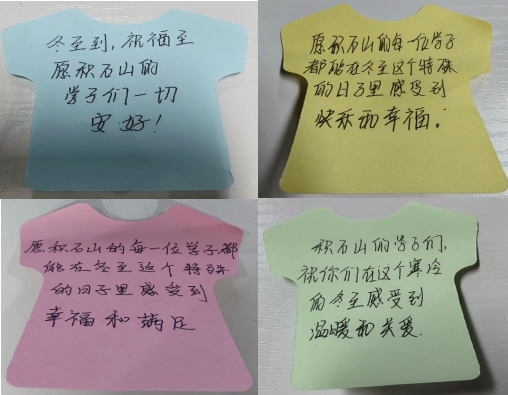 冬至到，祝福至
愿积石山的
学子们一切
安好！
愿积石山的每一位学子
都能在冬至这个特殊
的日子里感受到
快乐和幸福！
愿积石山的每一位学子都
能在冬至这个特殊
的日子里感受到
幸福和满足
积石山的学子们，
祝你们在这个寒冷
的冬至感受到
温暖和关爱.